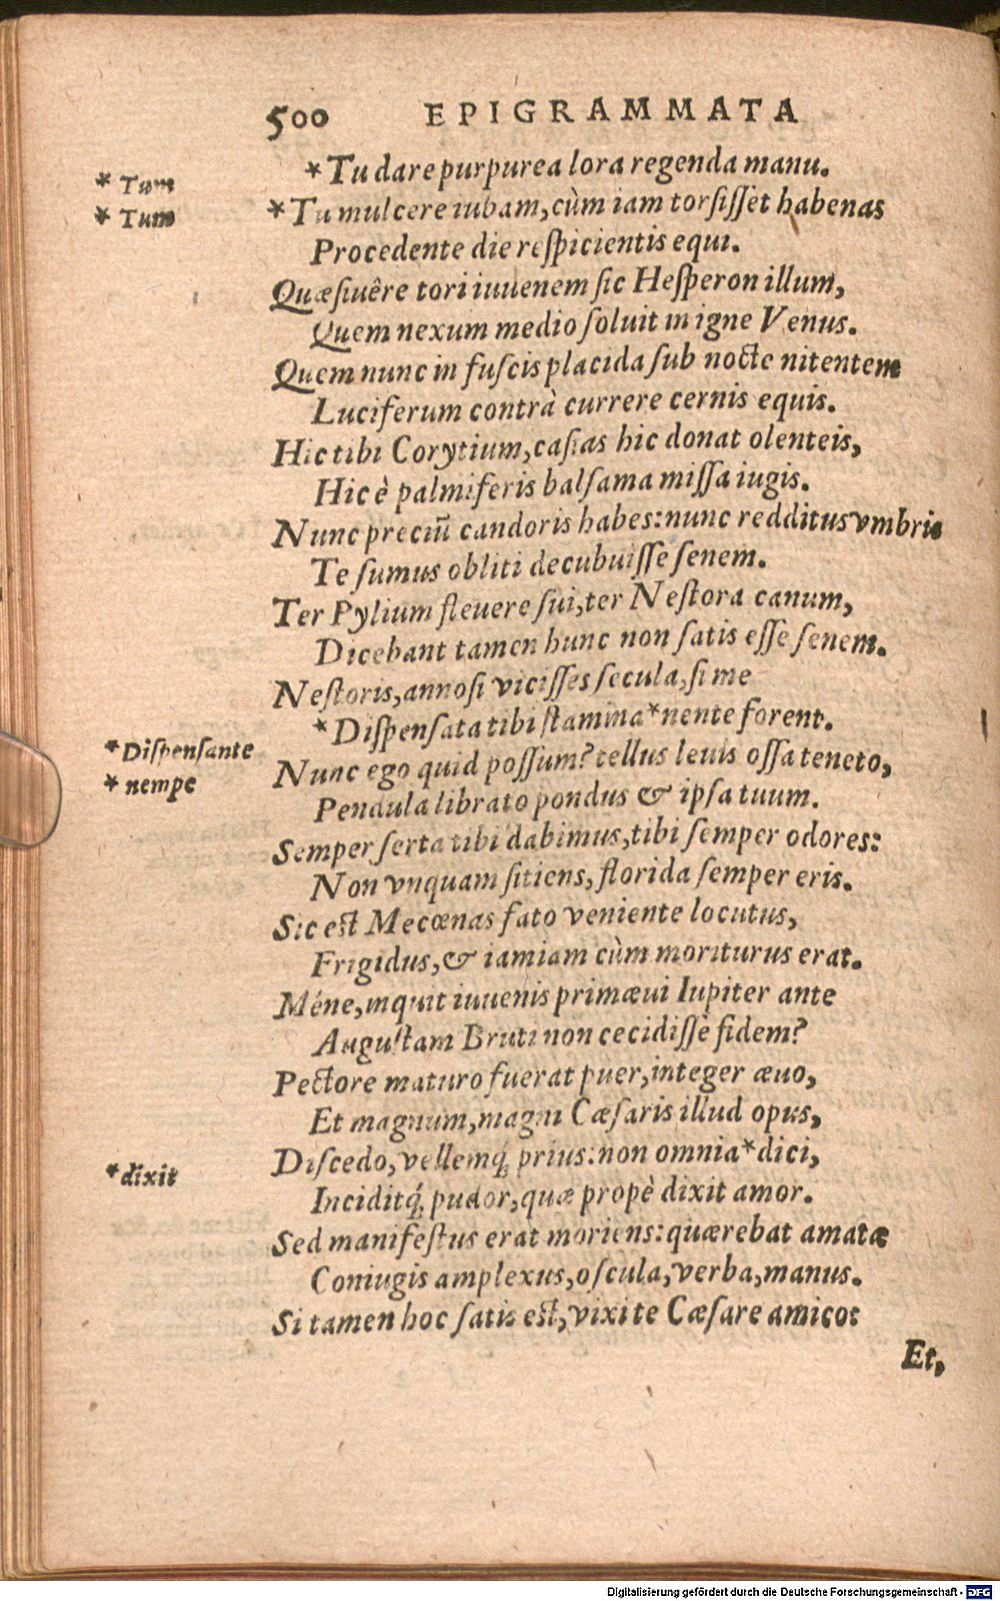 500 EPIGRAMMATA
*Tu dare purpurea lora regenda manu.
* Tum
*Tu mulcere iubam, cùm iam torsisset habenas
* Tum
Procedente die respicientis equi.
Quæsiuêre tori iuuenem sic Hesperon illum,
Quem nexum medio soluit in igne Venus.
Quem nunc in fuscis placida sub nocte nitentem
Luciferum contrà currere cernis equis.
Hic tibi Corytium, casias hic donat olenteis,
Hic è palmiferis balsama missa iugis.
Nunc preciū candoris habes: nunc redditus vmbris
Te sumus obliti decubuisse senem.
Ter Pylium fleuere sui, ter Nestora canum,
Dicebant tamen hunc non satis esse senem.
Nestoris, annosi vicisses secula, si me
*Dispensata tibi stamina *nente forent.
*Dispensante
Nunc ego quid possum? tellus leuis ossa teneto,
* nempe
Pendula librato pondus & ipsa tuum.
Semper serta tibi dabimus, tibi semper odores:
Non vnquam sitiens, florida semper eris.
Sic est Mecœnas fato veniente locutus,
Frigidus, & iamiam cùm moriturus erat.
Méne, inquit iuuenis primæui Iupiter ante
Augustam Bruti non cecidisse fidem?
Pectore maturo fuerat puer, integer æuo,
Et magnum, magni Cæsaris illud opus,
Discedo, vellemq́; prius: non omnia *dici,
*dixit
Inciditq́; pudor, quæ propè dixit amor.
Sed manifestus erat moriens: quærebat amatæ
Coniugis amplexus, oscula, verba, manus.
Si tamen hoc satis est, vixi te Cæsare amico:
Et,
Digitalisierung gefördert durch die Deutsche Forschungsgemeinschaft - DFG